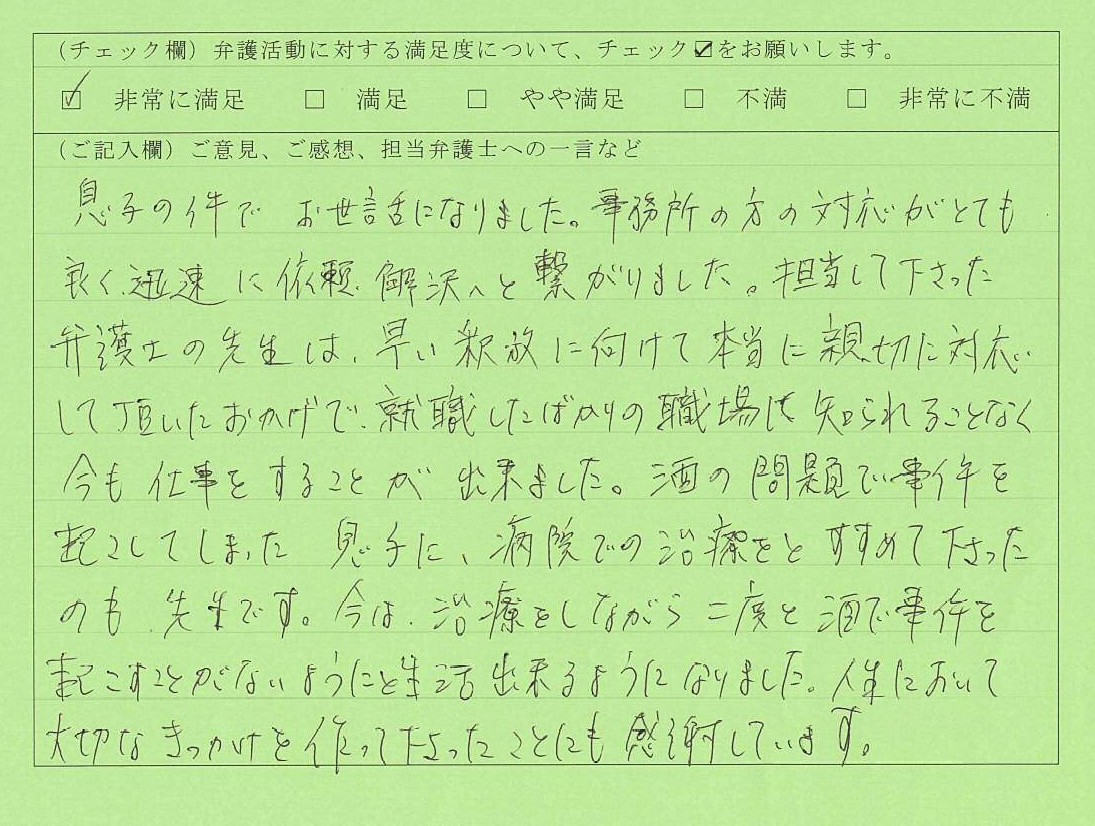 （チェック欄）弁護活動に対する満足度について、チェック☑をお願いします。
☑ 非常に満足 □ 満足 □ やや満足 □ 不満 □ 非常に不満
（ご記入欄）ご意見、ご感想、担当弁護士への一言など
息子の件で お世話になりました。事務所の方の対応がとても
良く、迅速に依頼、解決へと繋がりました。担当して下さった
弁護士の先生は、早い釈放に向けて本当に親切に対応
して頂いたおかげで、就職したばかりの職場にも知られることなく
今も仕事をすることが出来ました。酒の問題で事件を
起こしてしまった 息子に、病院での治療をとすすめて下さった
のも先生です。今は、治療をしながら二度と酒で事件を
起こすことがないようにと生活出来るようになりました。人生において
大切なきっかけを作って下さったことにも感謝しています。